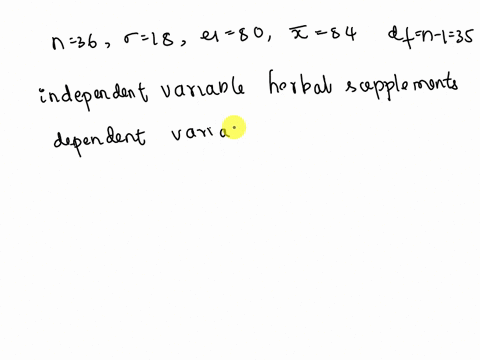 n=36, σ=18, μ=80, x̄=84 df=n-1=35
independent variable herbal supplements
dependent varia